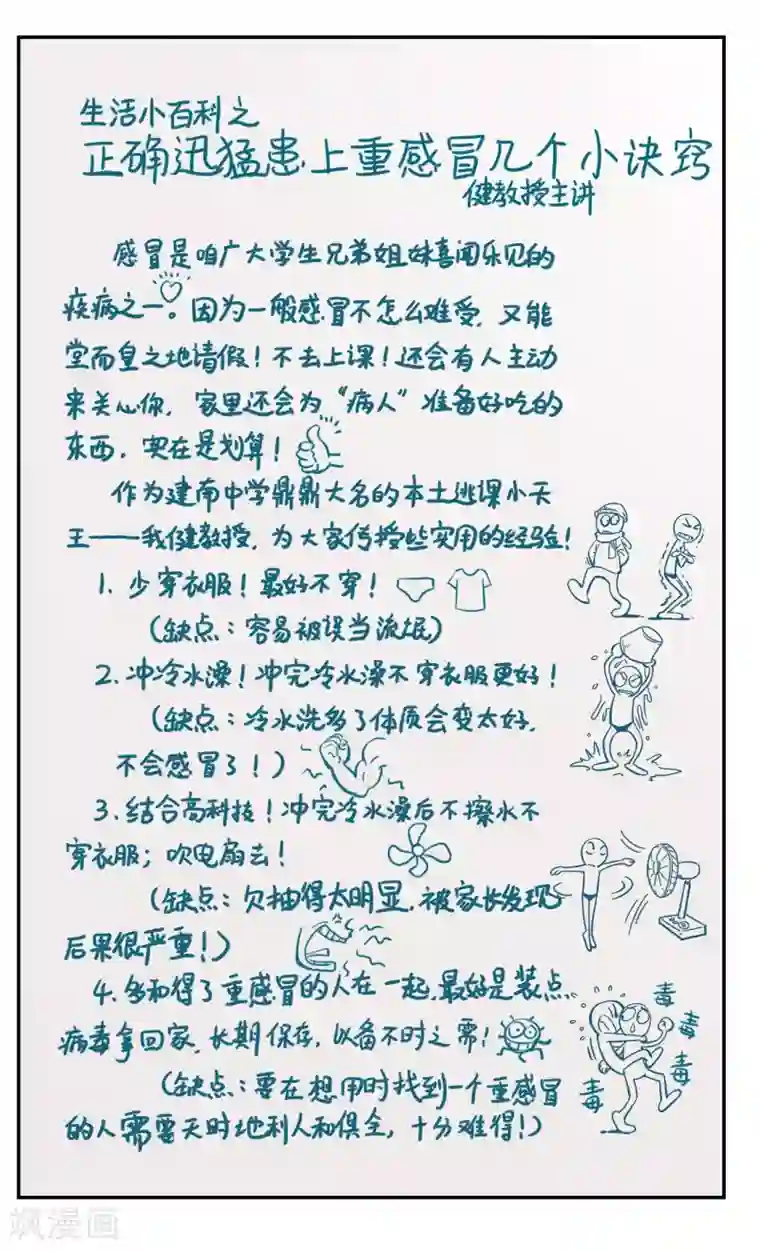 生活小百科之
正确迅猛患上重感冒几个小诀窍
健教授主讲
感冒是咱广大学生兄弟姐妹喜闻乐见的
疾病之一。因为一般感冒不怎么难受，又能
堂而皇之地请假！不去上课！还会有人主动
来关心你，家里还会为“病人”准备好吃的
东西，实在是划算！
作为建南中学鼎鼎大名的本土逃课小天
王——我健教授，为大家传授些实用的经验！
1、少穿衣服！最好不穿！
（缺点：容易被误当流氓）
2、冲冷水澡！冲完冷水澡不穿衣服更好！
（缺点：冷水洗多了体质会变太好，
不会感冒了！）
3、结合高科技！冲完冷水澡后不擦水不
穿衣服；吹电扇去！
（缺点：欠抽得太明显，被家长发现
后果很严重！）
4、多和得了重感冒的人在一起，最好是装点
病毒拿回家，长期保存，以备不时之需！
毒
毒
毒
毒
（缺点：要在想用时找到一个重感冒
的人需要天时地利人和俱全，十分难得！）
飒漫画